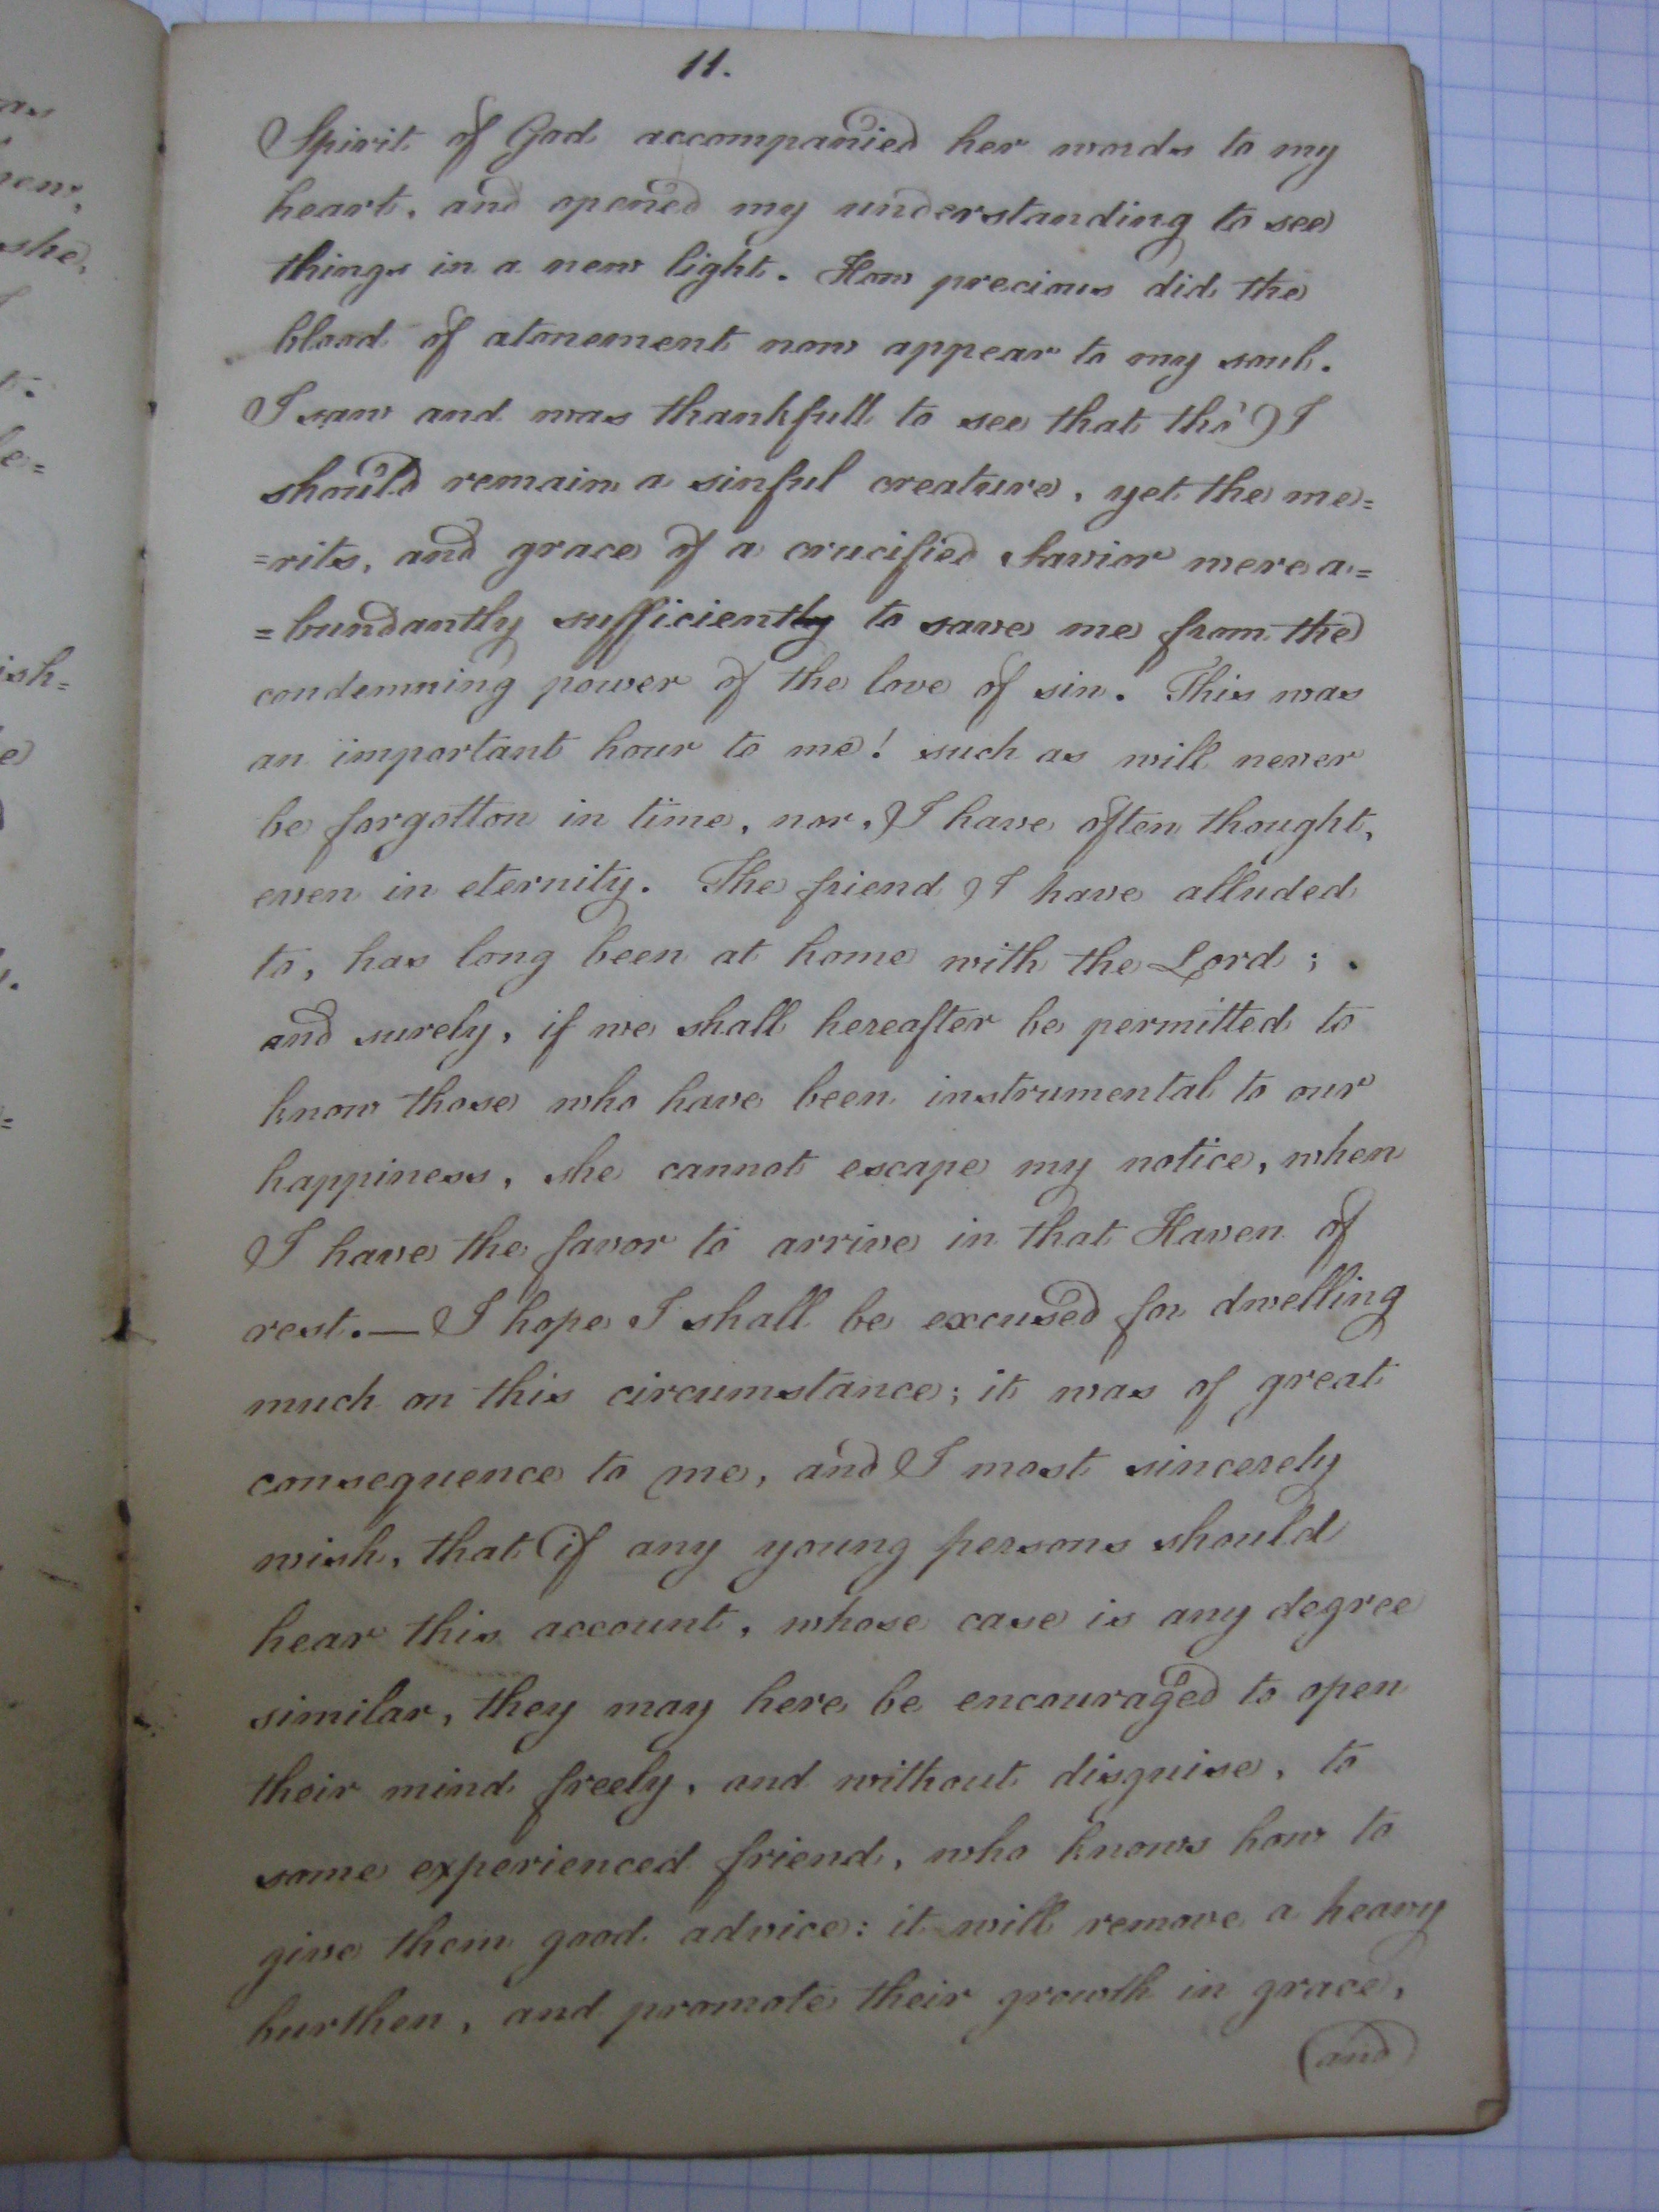 11.
Spirit of God accompanied her words to my
heart, and opened my understanding to see
things in a new light. How precious did the
blood of atonement now appear to my soul.
I saw and was thankfull to see that tho' I
should remain a sinful creature, yet the me=
=rits, and grace of a crucified Savior were a=
=bundantly sufficiently to save me from the
condemning power of the love of sin. This was
an important hour to me! such as will never
be forgotton in time, nor, I have often thought,
even in eternity. The friend I have alluded
to, has long been at home with the Lord;
and surely, if we shall hereafter be permitted to
know those who have been instrumental to our
happiness, she cannot escape my notice, when
I have the favor to arrive in that Haven of
rest.— I hope I shall be excused for dwelling
much on this circumstance; it was of great
consequence to me, and I most sincerely
wish, that if any young persons should
hear this account, whose case is any degree
similar, they may here be encouraged to open
their mind freely, and without disguise, to
some experienced friend, who knows how to
give them good advice: it will remove a heavy
burthen, and promote their growth in grace,
(and)